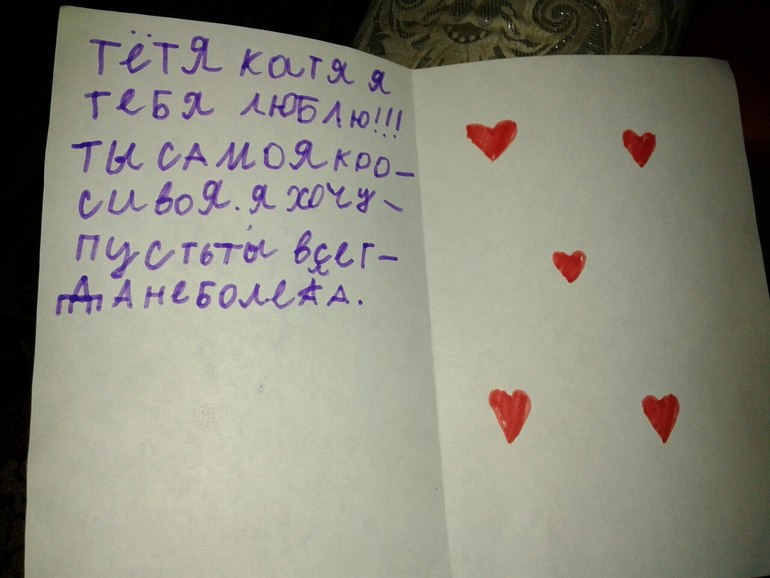 тётя катя я
тебя люблю!!!
ты самоя кро-
сивоя. я хочу-
пустьты всег-
да неболела.